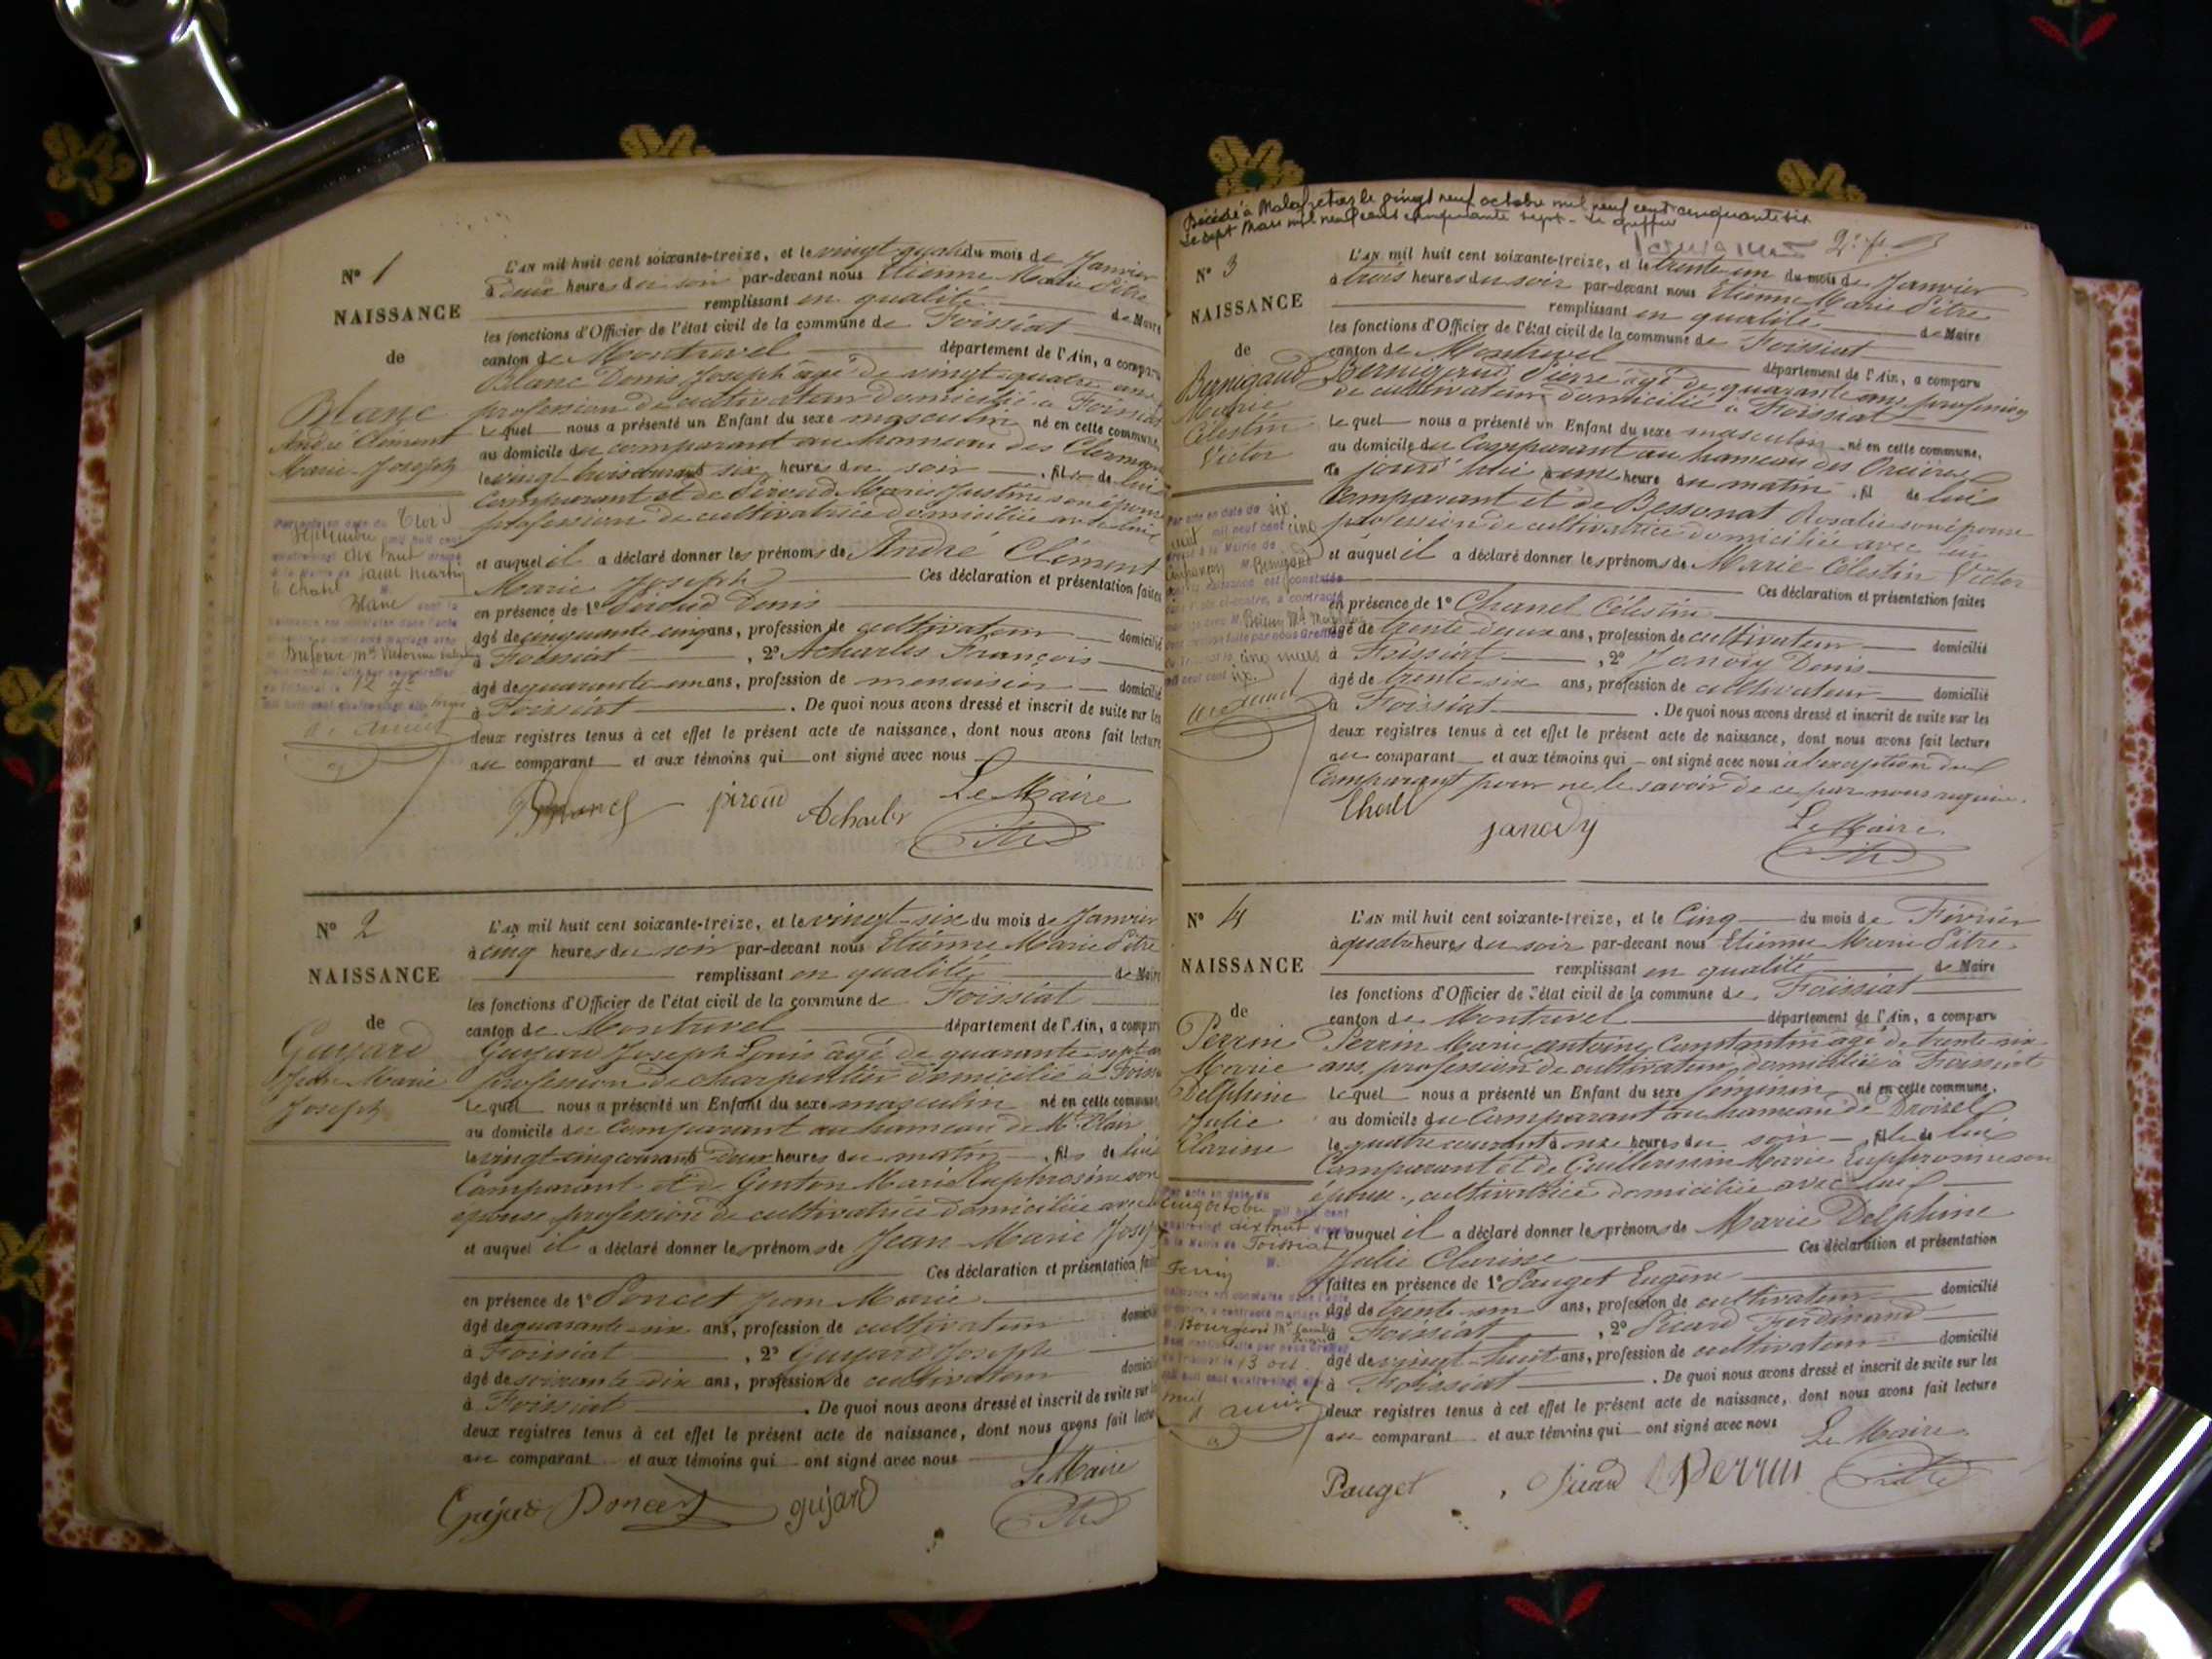 N° 1
NAISSANCE
de
Blanc
André Clément
Marie-Joseph
L'AN mil huit cent soixante-treize, et le vingt-quatre du mois de Janvier
à deux heures du soir par-devant nous Etienne Marie Pitre
remplissant en qualité de Maire
les fonctions d'Officier de l'état civil de la commune de Foissiat
canton de Montrevel département de l'Ain, a comparu
Blanc Denis Joseph âgé de vingt-quatre ans
profession de cultivateur domicilié à Foissiat
Lequel nous a présenté un Enfant du sexe masculin né en cette commune,
au domicile du comparant au hameau des
le vingt trois courant à six heures du soir , fils de lui
Comparant et de Piroud Marie Justine son épouse
profession de cultivatrice domiciliée avec lui
et auquel il a déclaré donner les prénoms de André Clément
Marie Joseph Ces déclaration et présentation faites
en présence de 1° Piroud Denis
âgé de cinquante cinq ans, profession de cultivateur domicilié
à Foissiat , 2° Acharles François
âgé de quarante un ans, profession de menuisier domicilié
à Foissiat . De quoi nous avons dressé et inscrit de suite sur les
deux registres tenus à cet effet le présent acte de naissance, dont nous avons fait lecture
au comparant et aux témoins qui ont signé avec nous
Le Maire
piroud
N° 2
NAISSANCE
de
Guyard
Jean Marie
Joseph
L'AN mil huit cent soixante-treize, et le vingt-six du mois de Janvier
à cinq heures du soir par-devant nous Etienne Marie Pitre
remplissant en qualité de Maire
les fonctions d'Officier de l'état civil de la commune de Foissiat
canton de Montrevel département de l'Ain, a comparu
Guyard Joseph Louis âgé de quarante-sept
profession de charpentier domicilié à
Lequel nous a présenté un Enfant du sexe masculin né en cette commune,
au domicile du Comparant au hameau de
le vingt-cinq courant à deux heures du matin , fils de lui
Comparant et de Genton Marie Euphrosine son
épouse profession de cultivatrice domiciliée avec
et auquel il a déclaré donner les prénoms de Jean Marie Joseph
Ces déclaration et présentation
en présence de 1° Poncet Jean Marie
âgé de quarante-six ans, profession de cultivateur
à Foissiat , 2° Guyard Joseph
âgé de soixante dix ans, profession de cultivateur
à Foissiat . De quoi nous avons dressé et inscrit de suite sur
deux registres tenus à cet effet le présent acte de naissance, dont nous avons fait lecture
au comparant et aux témoins qui ont signé avec nous
Le Maire
Poncet gujard
Décédé à Malafretaz le vingt neuf octobre mil neuf cent cinquante six
Le sept Mars mil neuf cent cinquante sept - Le greffier
N° 3
NAISSANCE
de
Bernigaud
Marie
Célestin
Victor
L'AN mil huit cent soixante-treize, et le trente un du mois de Janvier
à trois heures du soir par-devant nous Etienne Marie Pitre
remplissant en qualité de Maire
les fonctions d'Officier de l'état civil de la commune de Foissiat
canton de Montrevel département de l'Ain, a comparu
Bernigaud Pierre âgé de quarante ans, profession
de cultivateur domicilié à Foissiat
Lequel nous a présenté un Enfant du sexe masculin né en cette commune,
au domicile du Comparant au hameau des
à une heure du matin , fil de lui
Comparant et de Bessonat Rosalie son épouse
profession de cultivatrice domiciliée avec lui
et auquel il a déclaré donner les prénoms de Marie Célestin Victor
Ces déclaration et présentation faites
en présence de 1° Chanel Célestin
âgé de trente deux ans, profession de cultivateur domicilié
à Foissiat , 2° Janody Denis
âgé de trente-six ans, profession de cultivateur domicilié
à Foissiat . De quoi nous avons dressé et inscrit de suite sur les
deux registres tenus à cet effet le présent acte de naissance, dont nous avons fait lecture
au comparant et aux témoins qui ont signé avec nous à l'exception du
Comparant pour ne le savoir de ce par nous requis.
janody
Le Maire
N° 4
NAISSANCE
de
Perrin
Marie
Delphine
Julie
Clarisse
L'AN mil huit cent soixante-treize, et le Cinq du mois de Février
à quatre heures du soir par-devant nous Etienne Marie Pitre
remplissant en qualité de Maire
les fonctions d'Officier de l'état civil de la commune de Foissiat
canton de Montrevel département de l'Ain, a comparu
Perrin Marie Antoine Constantin âgé de trente-six
ans, profession de cultivateur, domicilié à Foissiat
Lequel nous a présenté un Enfant du sexe féminin né en cette commune,
au domicile du Comparant au hameau de
le quatre courant à onze heures du soir , fille de lui
Comparant et de Guillermin Marie Euphrosine son
épouse, cultivatrice domiciliée avec lui
et auquel il a déclaré donner les prénoms de Marie Delphine
Julie Clarisse Ces déclaration et présentation
faites en présence de 1° Pauget Eugène domicilié
âgé de trente-un ans, profession de cultivateur
à Foissiat , 2° Ferdinand
âgé de vingt-huit ans, profession de cultivateur domicilié
à Foissiat . De quoi nous avons dressé et inscrit de suite sur les
deux registres tenus à cet effet le présent acte de naissance, dont nous avons fait lecture
au comparant et aux témoins qui ont signé avec nous
Le Maire
Pauget Perrin